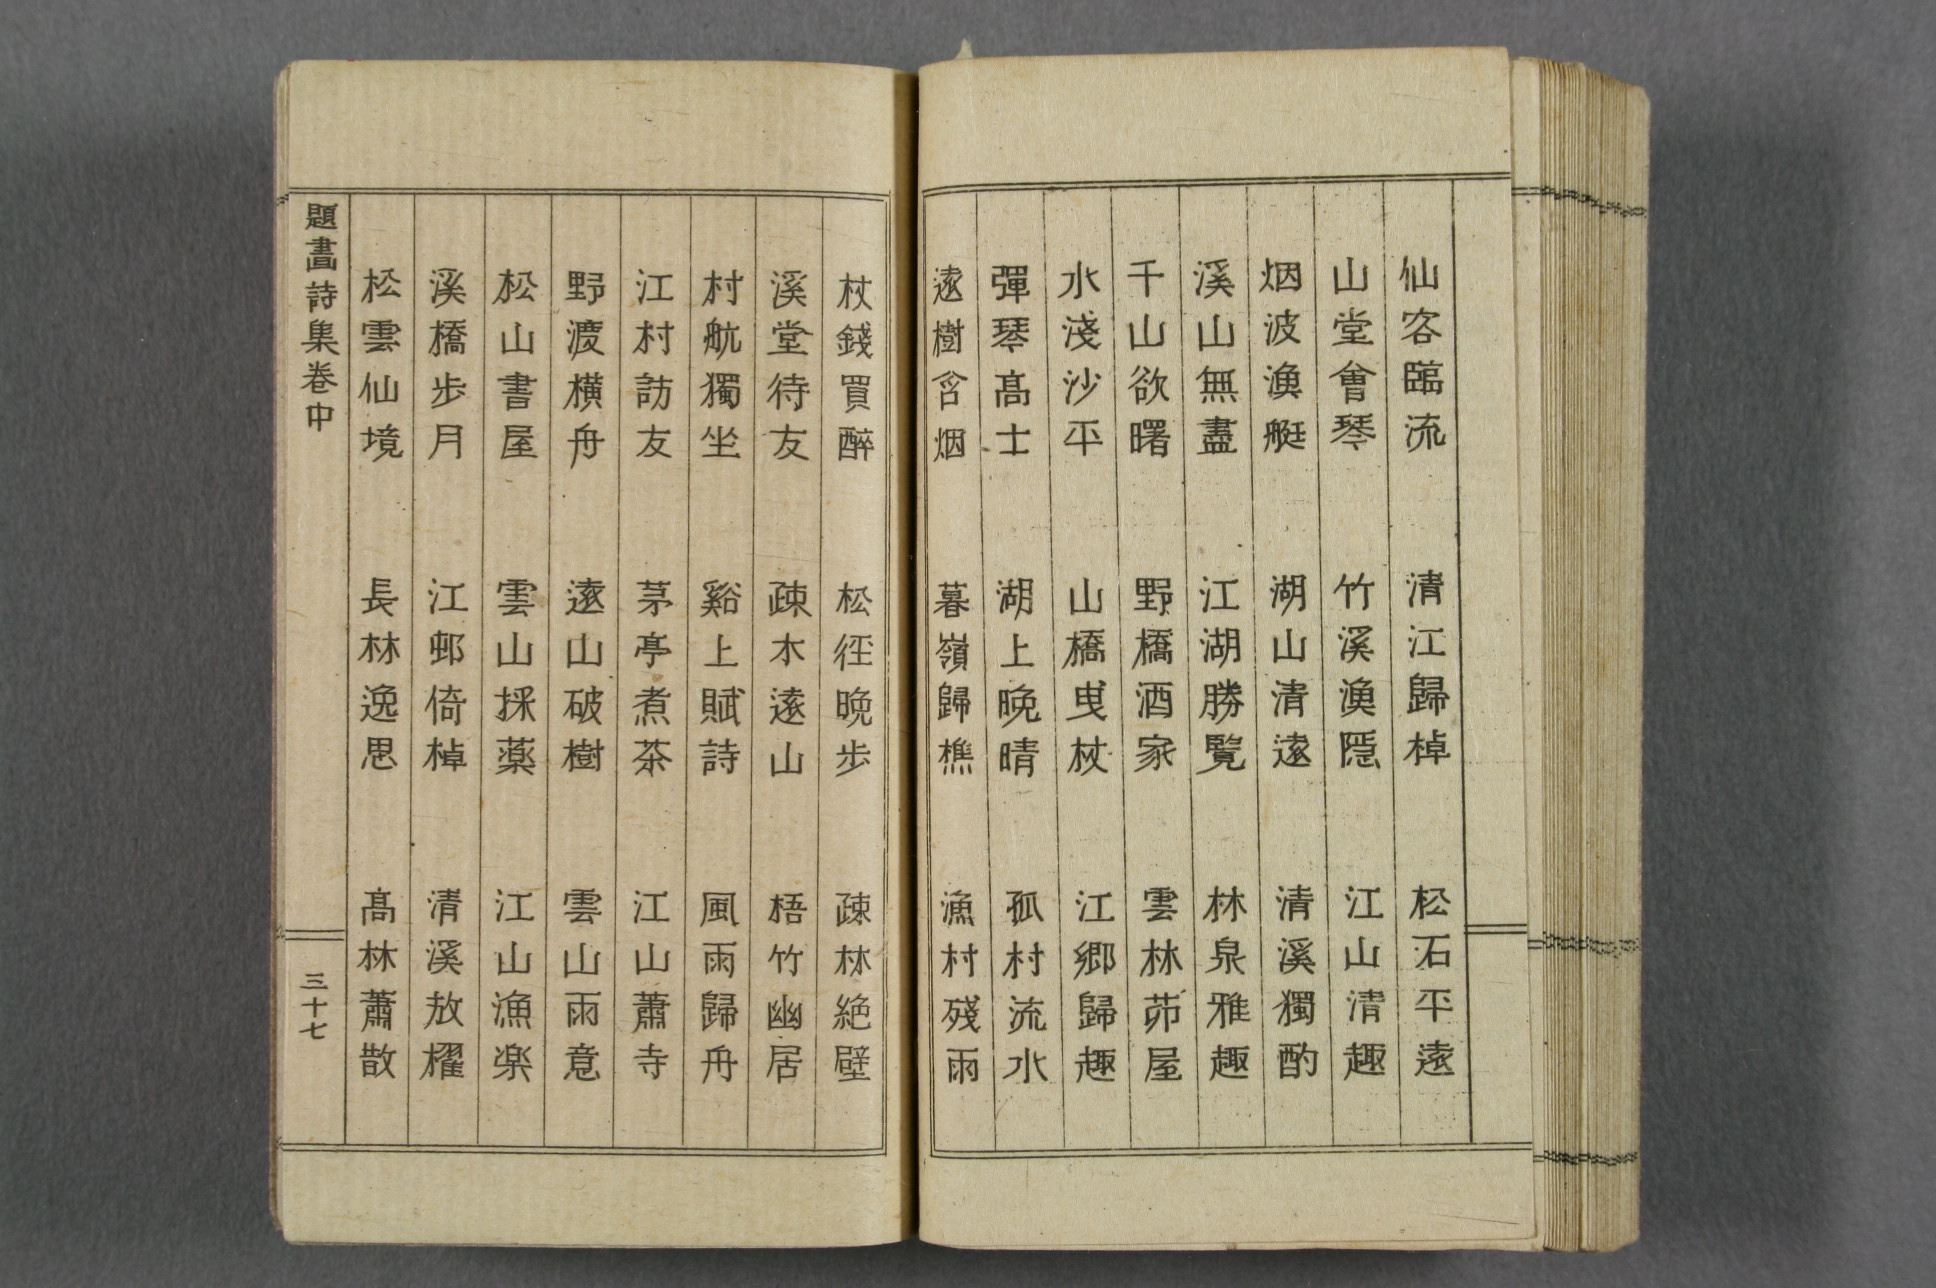 仙客臨流 清江歸棹 松石平遠
山堂會琴 竹溪漁隱 江山清趣
烟波漁艇 湖山清遠 清溪獨酌
溪山無盡 江湖勝覽 林泉雅趣
千山欲曙 野橋酒家 雲林茆屋
水淺沙平 山橋曳杖 江鄉歸趣
彈琴高士 湖上晚晴 孤村流水
遠樹含烟 暮嶺歸樵 漁村殘雨
杖錢買醉 松徑晚步 疎林絶壁
溪堂待友 疎木遠山 梧竹幽居
村航獨坐 谿上賦詩 風雨歸舟
江村訪友 茅亭煮茶 江山蕭寺
野渡横舟 遠山破樹 雲山雨意
松山書屋 雲山採薬 江山漁楽
溪橋歩月 江邨倚棹 清溪放櫂
松雲仙境 長林逸思 高林蕭散
題畫詩集卷中 三十七